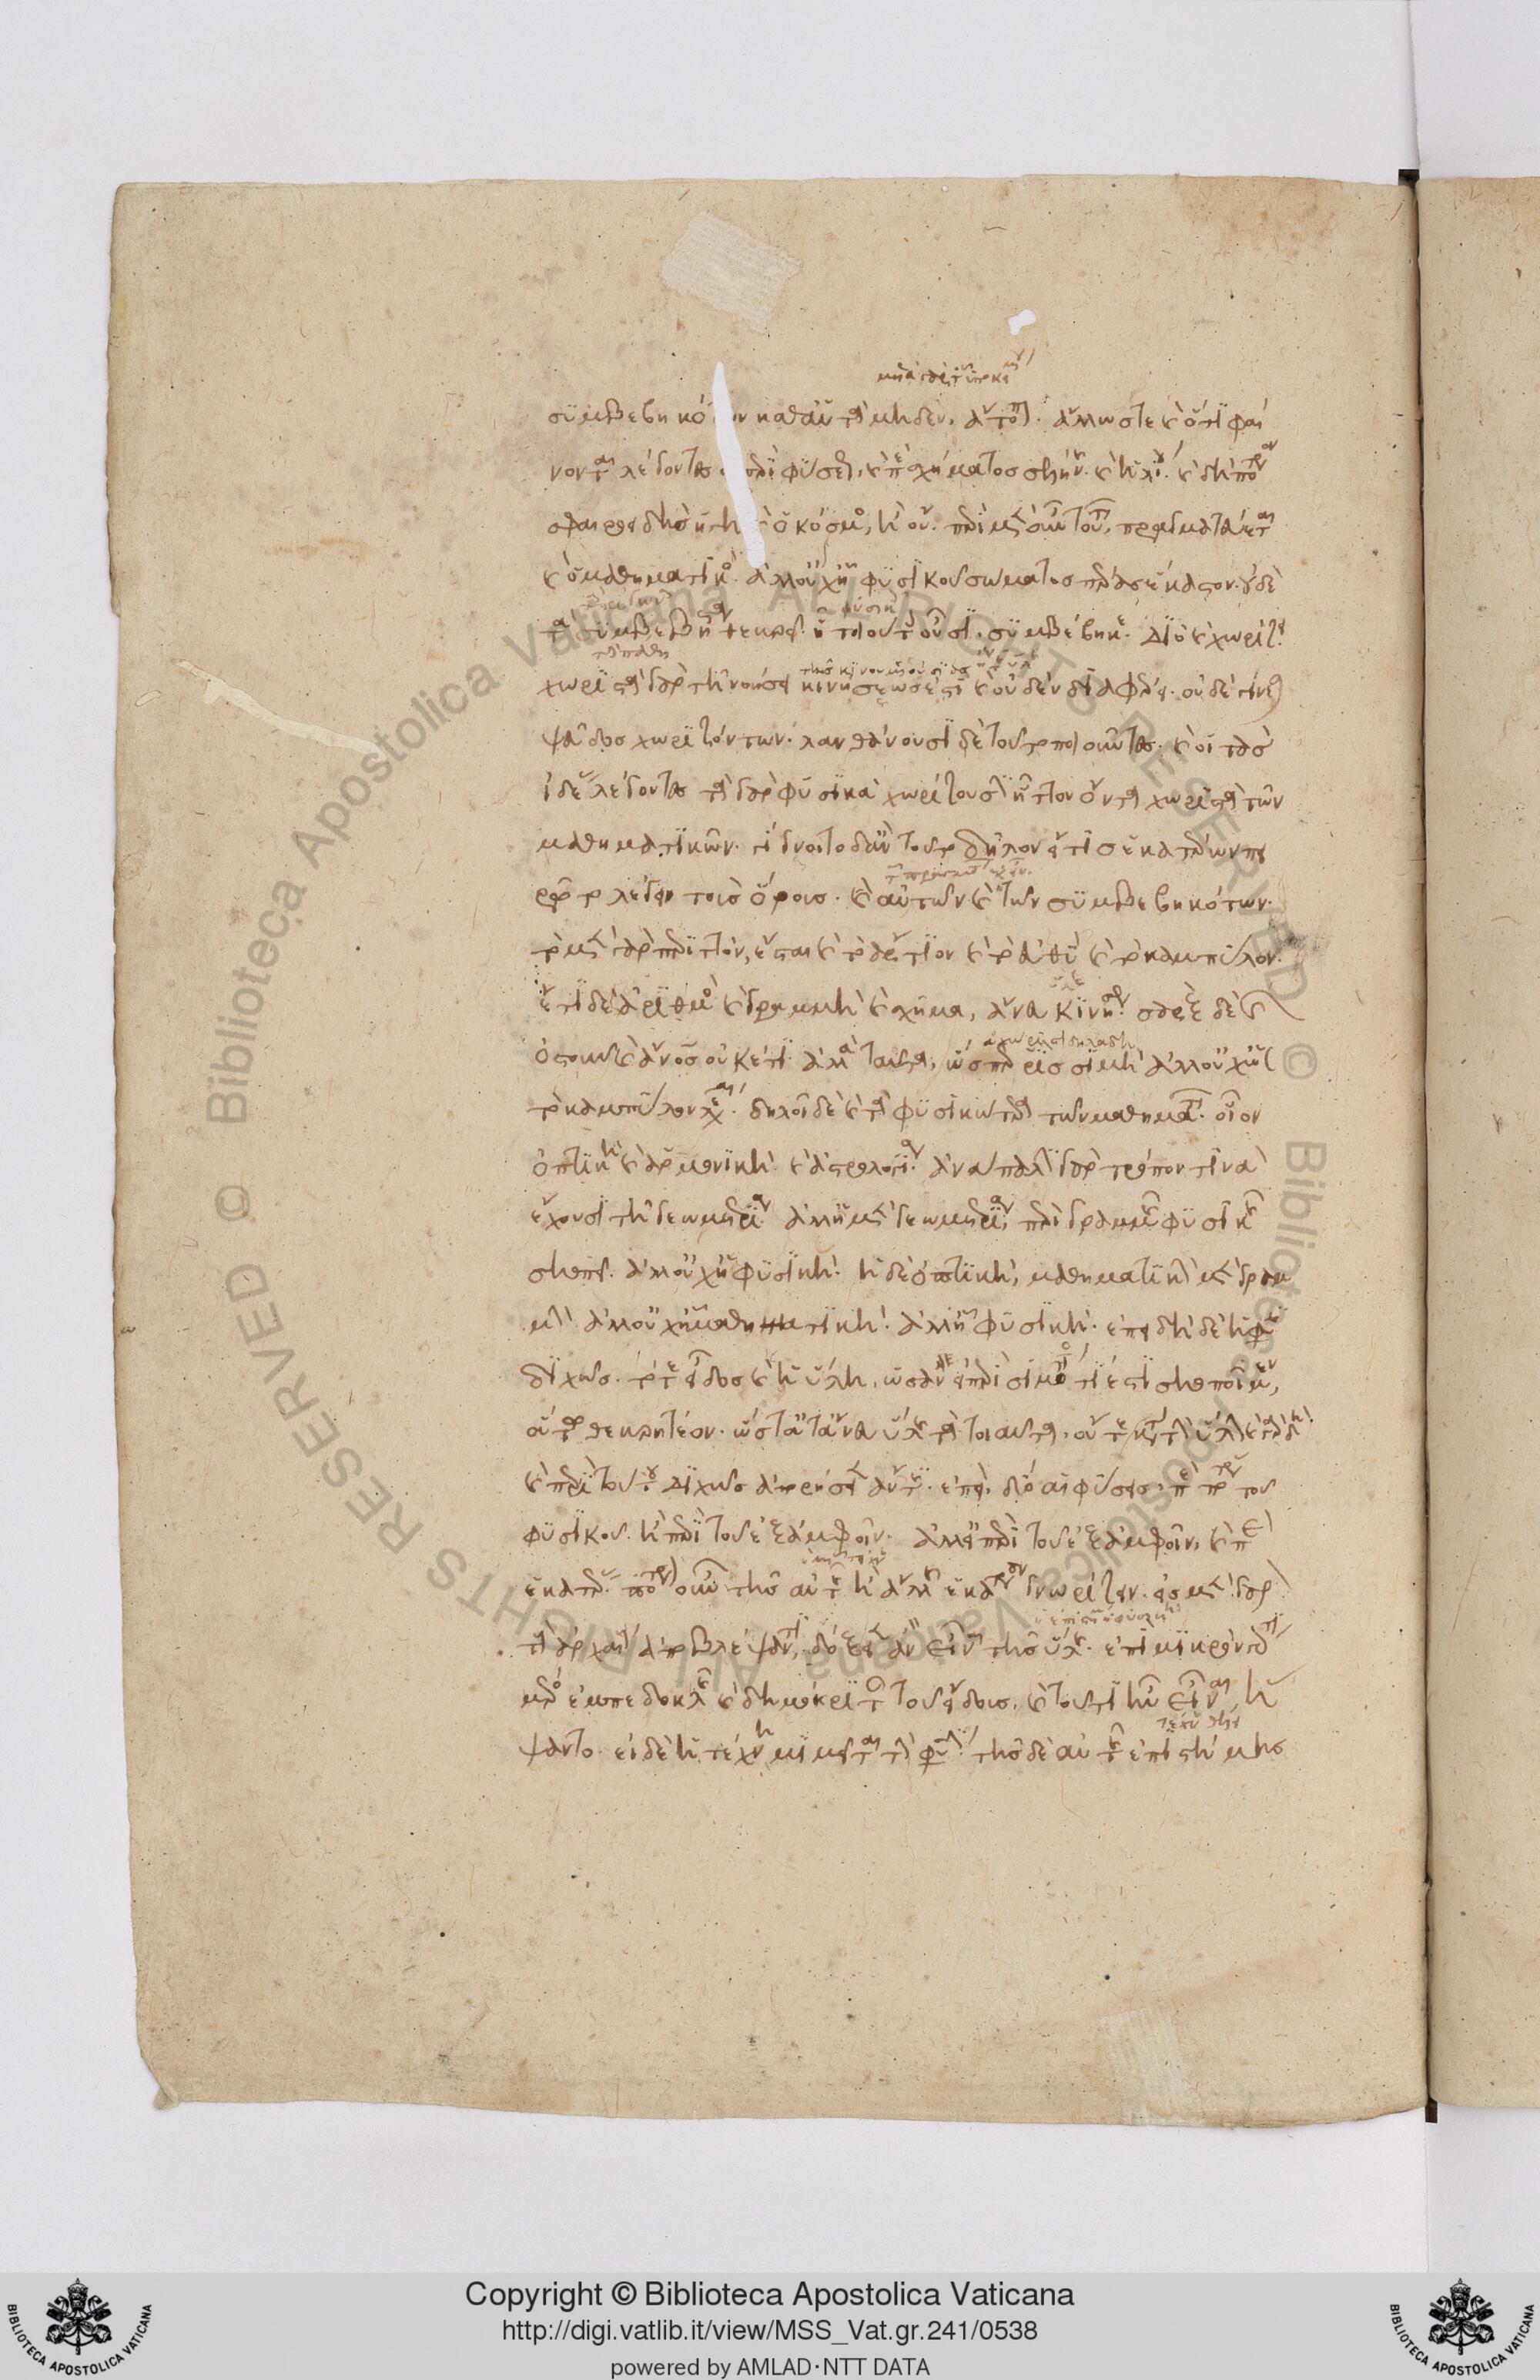 συμβεβηκότων καθ' αὑτὰ μηδέν, ἄτοπον. ἄλλως τε καὶ ὅτι φαί
νονται λέγοντες οἱ περὶ φύσεως, καὶ περὶ σχήματος σελήνης. καὶ ἡλίου. καὶ δὴ πότερον
σφαιροειδὴς ἡ γῆ καὶ ὁ κόσμος, ἢ οὔ. περὶ μὲν οὖν τούτων, πραγματεύεται
καὶ ὁ μαθηματικός. ἀλλ' οὐχ ᾗ φυσικοῦ σώματος πέρας ἕκαστον. οὐδὲ
τὰ συμβεβηκότα θεωρεῖ ᾗ τοιούτοις οὖσι συμβέβηκε. διὸ καὶ χωρίζει.
χωριστὰ γὰρ τῇ νοήσει κινήσεώς ἐστι καὶ οὐδὲν διαφέρει. οὐδὲ γίνεται
ψεῦδος χωριζόντων. λανθάνουσι δὲ τοῦτο ποιοῦντες. καὶ οἱ τὰς
ἰδέας λέγοντες τὰ γὰρ φυσικὰ χωρίζουσιν ἧττον ὄντα χωριστὰ τῶν
μαθηματικῶν. γίγνοιτο δ' ἂν τοῦτο δῆλον εἴ τις ἑκατέρων πει
ρῷτο λέγειν τοὺς ὅρους. καὶ αὐτῶν καὶ τῶν συμβεβηκότων.
τὸ μὲν γὰρ περιττόν, ἔσται καὶ τὸ ἄρτιον καὶ τὸ εὐθὺ καὶ τὸ καμπύλον.
ἔτι δὲ ἀριθμὸς καὶ γραμμὴ καὶ σχῆμα, ἄνευ κινήσεως. σὰρξ δὲ καὶ
ὀστοῦν καὶ ἄνθρωπος οὐκέτι. ἀλλὰ ταῦτα, ὥσπερ ῥὶς σιμὴ ἀλλ' οὐχ ὡς
τὸ καμπύλον λέγεται. δηλοῖ δὲ καὶ τὰ φυσικώτερα τῶν μαθημάτων. οἷον
ὀπτικὴ καὶ ἁρμονικὴ. καὶ ἀστρολογία. ἀνάπαλιν γὰρ τρόπον τινὰ
ἔχουσι τῇ γεωμετρίᾳ. ἀλλ' ἡ μὲν γεωμετρία, περὶ γραμμῆς φυσικῆς
σκοπεῖ. ἀλλ' οὐχ ᾗ φυσική. ἡ δὲ ὀπτική, μαθηματικὴν μὲν γραμ
μὴν ἀλλ' οὐχ ᾗ μαθηματική. ἀλλ' ᾗ φυσική. ἐπεὶ δὲ ἡ φύσις
διχῶς. τό τε εἶδος καὶ ἡ ὕλη, ὡς ἂν εἰ περὶ σιμότητος τί ἐστι σκοποῖμεν,
οὕτω θεωρητέον. ὥστ' οὔτ' ἄνευ ὕλης τὰ τοιαῦτα, οὔτε κατὰ τὴν ὕλην
καὶ περὶ τούτου διχῶς ἀπορήσειεν ἄν τις. ἐπεὶ δύο αἱ φύσεις, περὶ ποτέρας τοῦ
φυσικοῦ. ἢ περὶ τοῦ ἐξ ἀμφοῖν. ἀλλ' εἰ περὶ τοῦ ἐξ ἀμφοῖν, καὶ περὶ
ἑκατέρας. πότερον οὖν τῆς αὐτῆς ἢ ἄλλης ἑκάτερον γνωρίζειν. εἰς μὲν γὰρ
τοὺς ἀρχαίους ἀποβλέψαντι, δόξειεν ἂν εἶναι τῆς ὕλης. ἐπὶ μικρὸν γάρ τι
μέρος ἐμπεδοκλῆς καὶ δημόκριτος τοῦ εἴδους. καὶ τοῦ τί ἦν εἶναι ἥ
ψαντο. εἰ δὲ ἡ τέχνη μιμεῖται τὴν φύσιν. τῆς δὲ αὐτῆς ἐπιστήμης
Copyright © Biblioteca Apostolica Vaticana
http://digi.vatlib.it/view/MSS_Vat.gr.241/0538
powered by AMLAD·NTT DATA